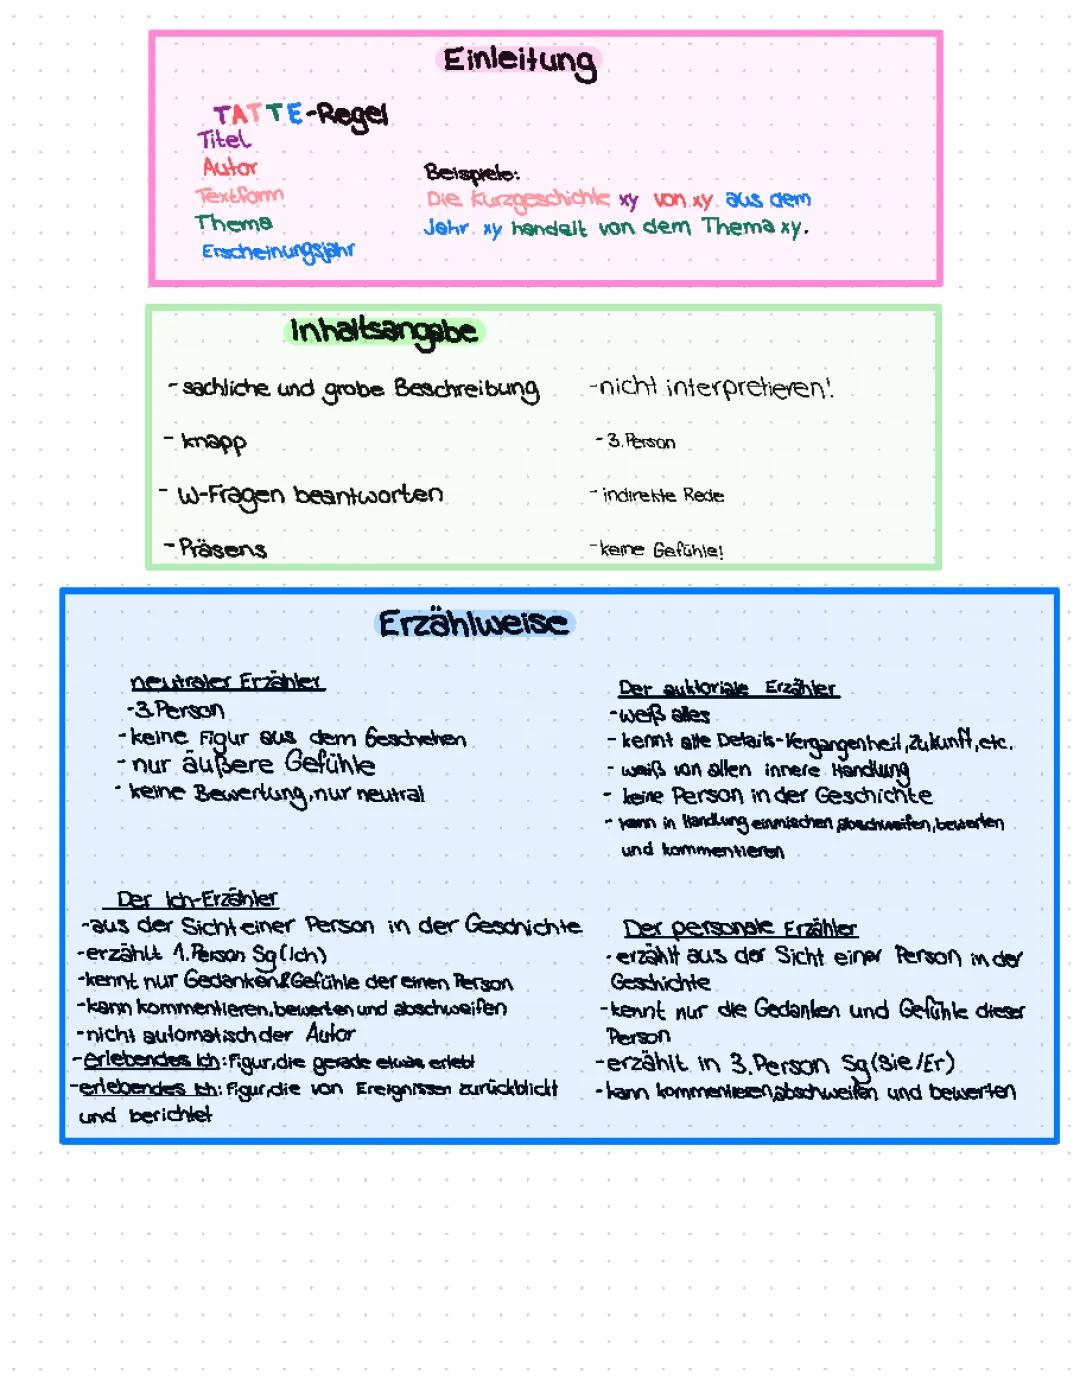 Einleitung
TATTE-Regel
Titel
Autor
Textform
Thema
Erscheinungsjahr
Beispiele:
Die Kurzgeschichte xy von xy aus dem
Jahr xy handelt von dem Thema xy.
Inhaltsangabe
- sachliche und grobe Beschreibung
- knapp
- W-Fragen beantworten
- Präsens
- nicht interpretieren!
- 3. Person
- indirekte Rede
- keine Gefühle!
Erzählweise
neutraler Erzähler
- 3. Person
- keine Figur aus dem Geschehen
- nur äußere Gefühle
- keine Bewertung, nur neutral
Der auktoriale Erzähler
- weiß alles
- kennt alle Details - Vergangenheit, Zukunft, etc.
- weiß von allen innere Handlung
- keine Person in der Geschichte
- kann in Handlung einmischen, abschweifen, bewerten
und kommentieren
Der Ich-Erzähler
- aus der Sicht einer Person in der Geschichte
- erzählt 1. Person Sg (Ich)
- kennt nur Gedanken & Gefühle der einen Person
- kann kommentieren, bewerten und abschweifen
- nicht automatisch der Autor
- erlebendes Ich: Figur, die gerade etwas erlebt
- erlebendes Ich: Figur, die von Ereignissen zurückblickt
und berichtet
Der personale Erzähler
- erzählt aus der Sicht einer Person in der
Geschichte
- kennt nur die Gedanken und Gefühle dieser
Person
- erzählt in 3. Person Sg (Sie/Er)
- kann kommentieren, abschweifen und bewerten